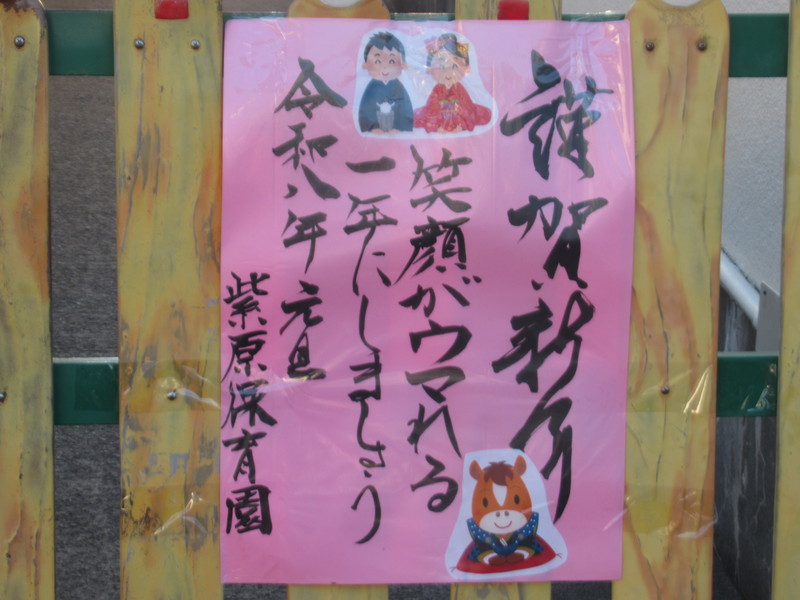 謹賀新年
笑顔がウマれる
一年にしましょう
令和八年 元旦
紫原保育園